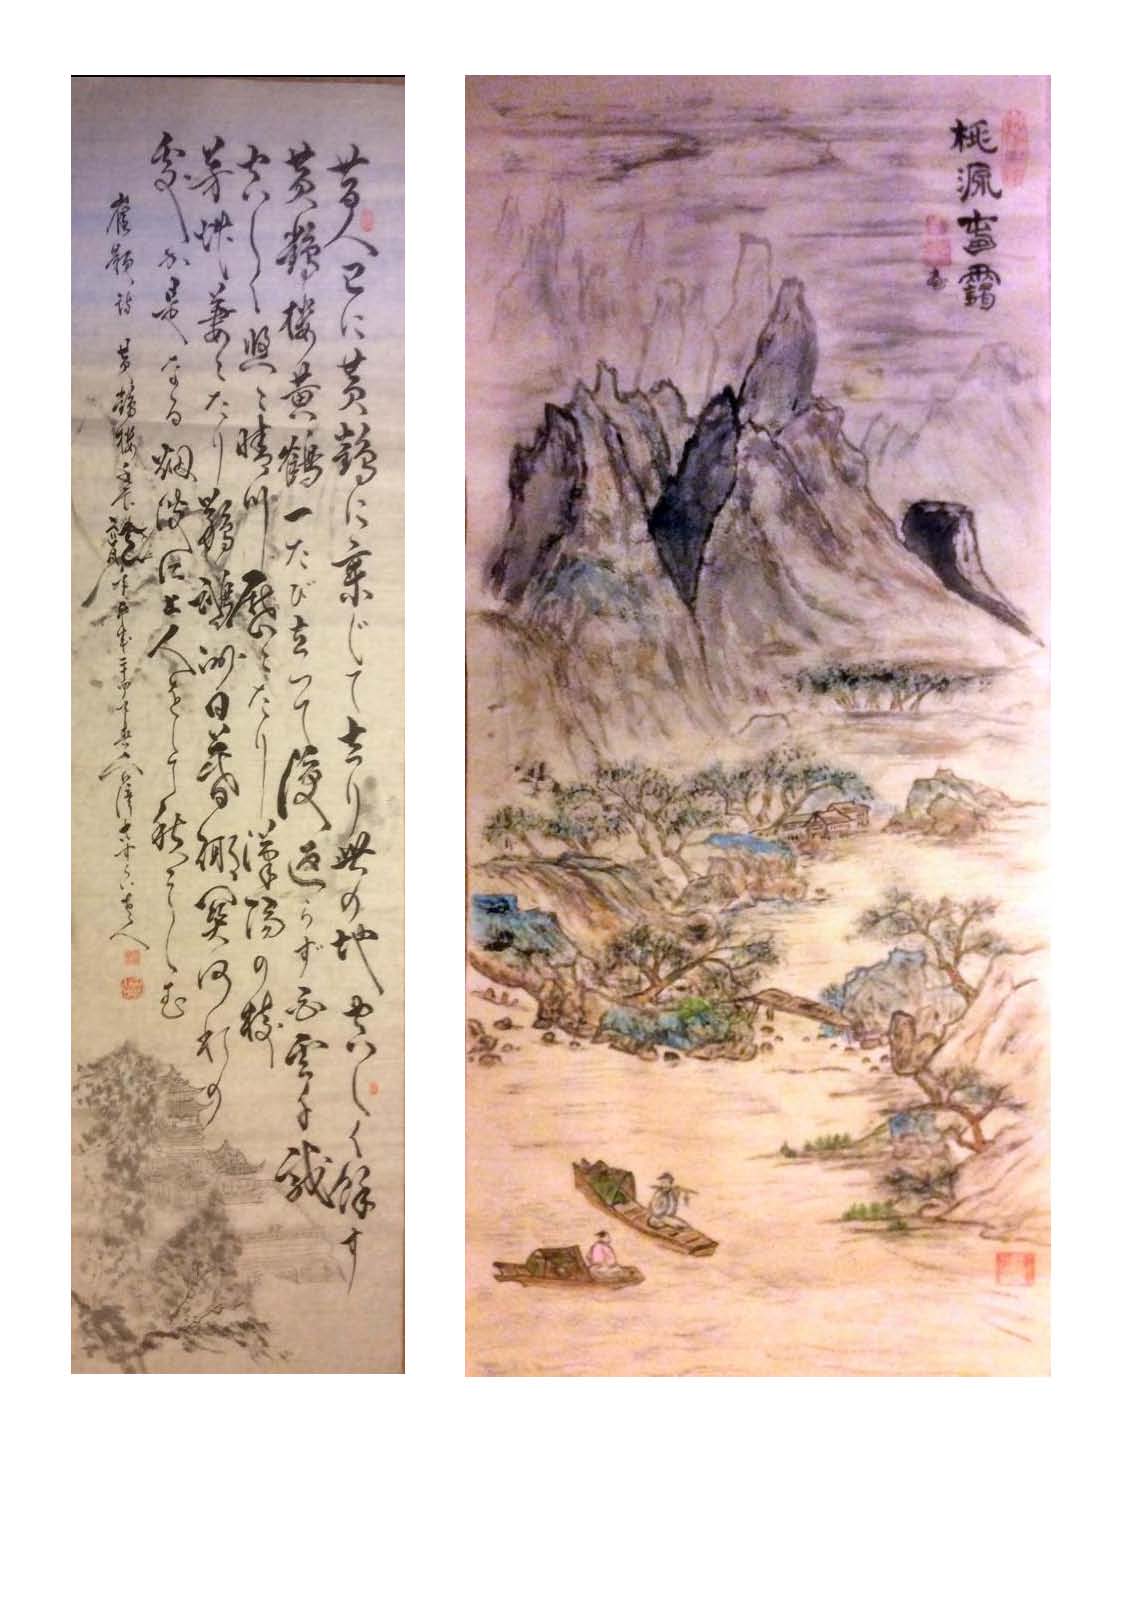 昔人已に黄鶴に乗じて去り此の地空しく餘す
黄鶴樓黄鶴一たび去って復返らず白雲千載
空しく悠〻晴川歴〻たり漢陽の樹
芳艸萋〻たり鸚鵡洲日暮郷関何れの
處か是なる烟波江上人をして愁へしむ
崔顥詩 黄鶴樓
桃源春靄